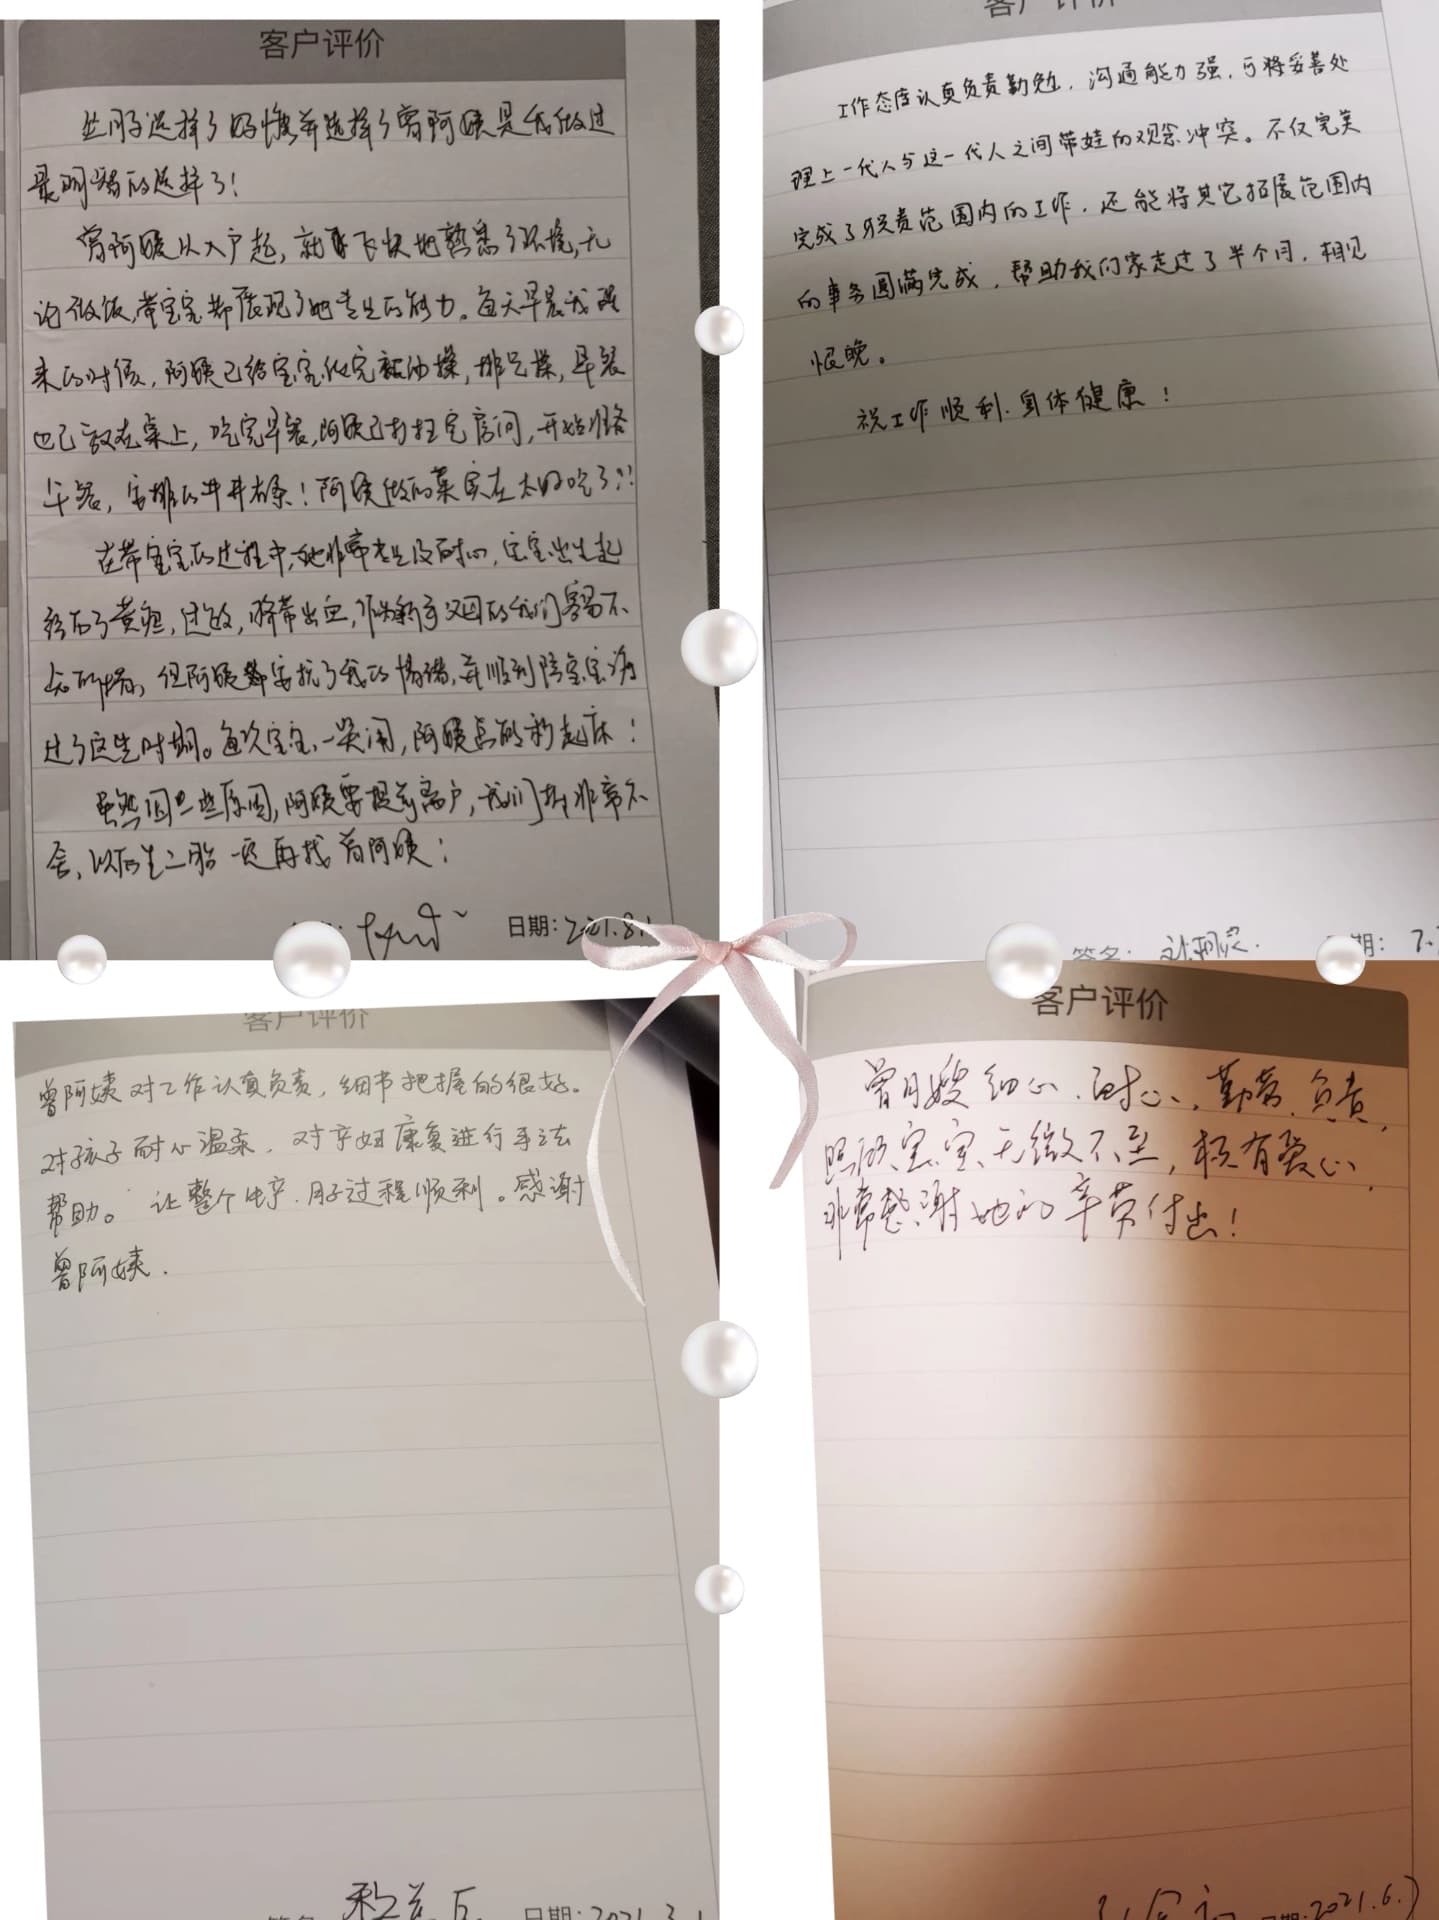 客户评价
坐月子选择了好慷并选择了曾阿姨是我做过
最明智的选择了！
曾阿姨从入户起，就飞快地熟悉了环境，无
论做饭，带宝宝都展现了她专业的能力。每天早晨我醒
来的时候，阿姨已给宝宝做完被动操，排气操，早餐
也已放在桌上，吃完早餐，阿姨已打扫完房间，开始准备
午餐，安排的井井有条！阿姨做的菜实在太好吃了！！
在带宝宝的过程中，她非常专业及耐心，宝宝出生起
经历了黄疸，过敏，脐带出血，作为新手父母的我们容易不
知所措，但阿姨都安抚了我的情绪，并顺利陪宝宝渡
过了这些时期。每次宝宝一哭闹，阿姨总能秒起床！
虽然因一些原因，阿姨要提前离户，我们都非常不
舍，以后生二胎一定再找曾阿姨！
日期：2021.8.1
客户评价
工作态度认真负责勤勉，沟通能力强，可将妥善处
理上一代人与这一代人之间带娃的观念冲突。不仅完美
完成了职责范围内的工作，还能将其它拓展范围内
的事务圆满完成，帮助我们家走过了半个月，相见
恨晚。
祝工作顺利、身体健康！
签名：
期：
客户评价
曾阿姨对工作认真负责，细节把握的很好。
对孩子耐心温柔，对产妇康复进行手法
帮助。让整个生产、月子过程顺利。感谢
曾阿姨．
日期：2021.3.1
客户评价
曾月嫂细心、耐心、勤劳、负责，
照顾宝宝无微不至，极有爱心，
非常感谢她的辛劳付出！
日期：2021.6.